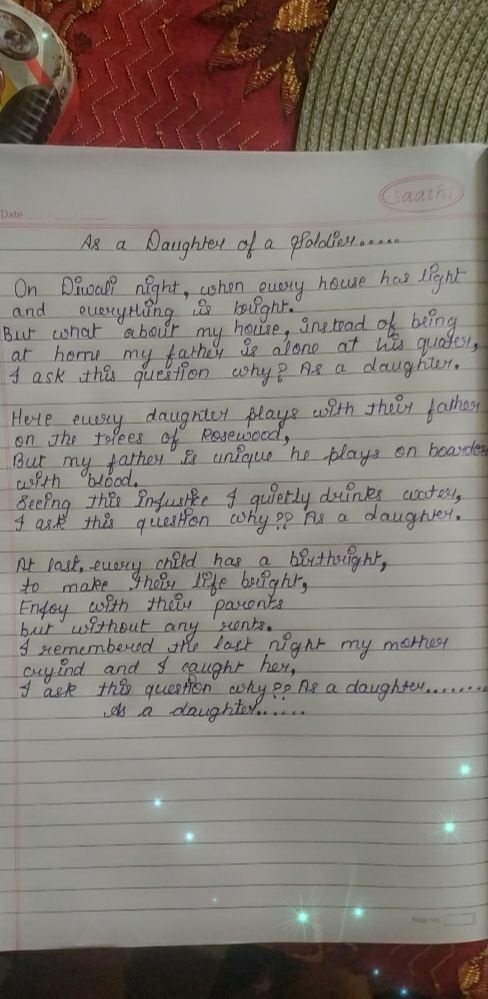 saathi
Date
As a Daughter of a Soldier.....
On Diwali night, when every house has light
and everything is bright.
But what about my house, instead of being
at home my father is alone at his quater,
I ask this question why? As a daughter.
Here every daughter plays with their father
on the trees of Rosewood,
But my father is unique he plays on boarder
with blood.
Seeing this Injustice I quietly drinks water,
I ask this question why?? As a daughter.
At last, every child has a birthright,
to make their life bright,
Enjoy with their parents
but without any rents.
I remembered the last night my mother
cryind and I caught her,
I ask this question why?? As a daughter........
As a daughter......
Page No.